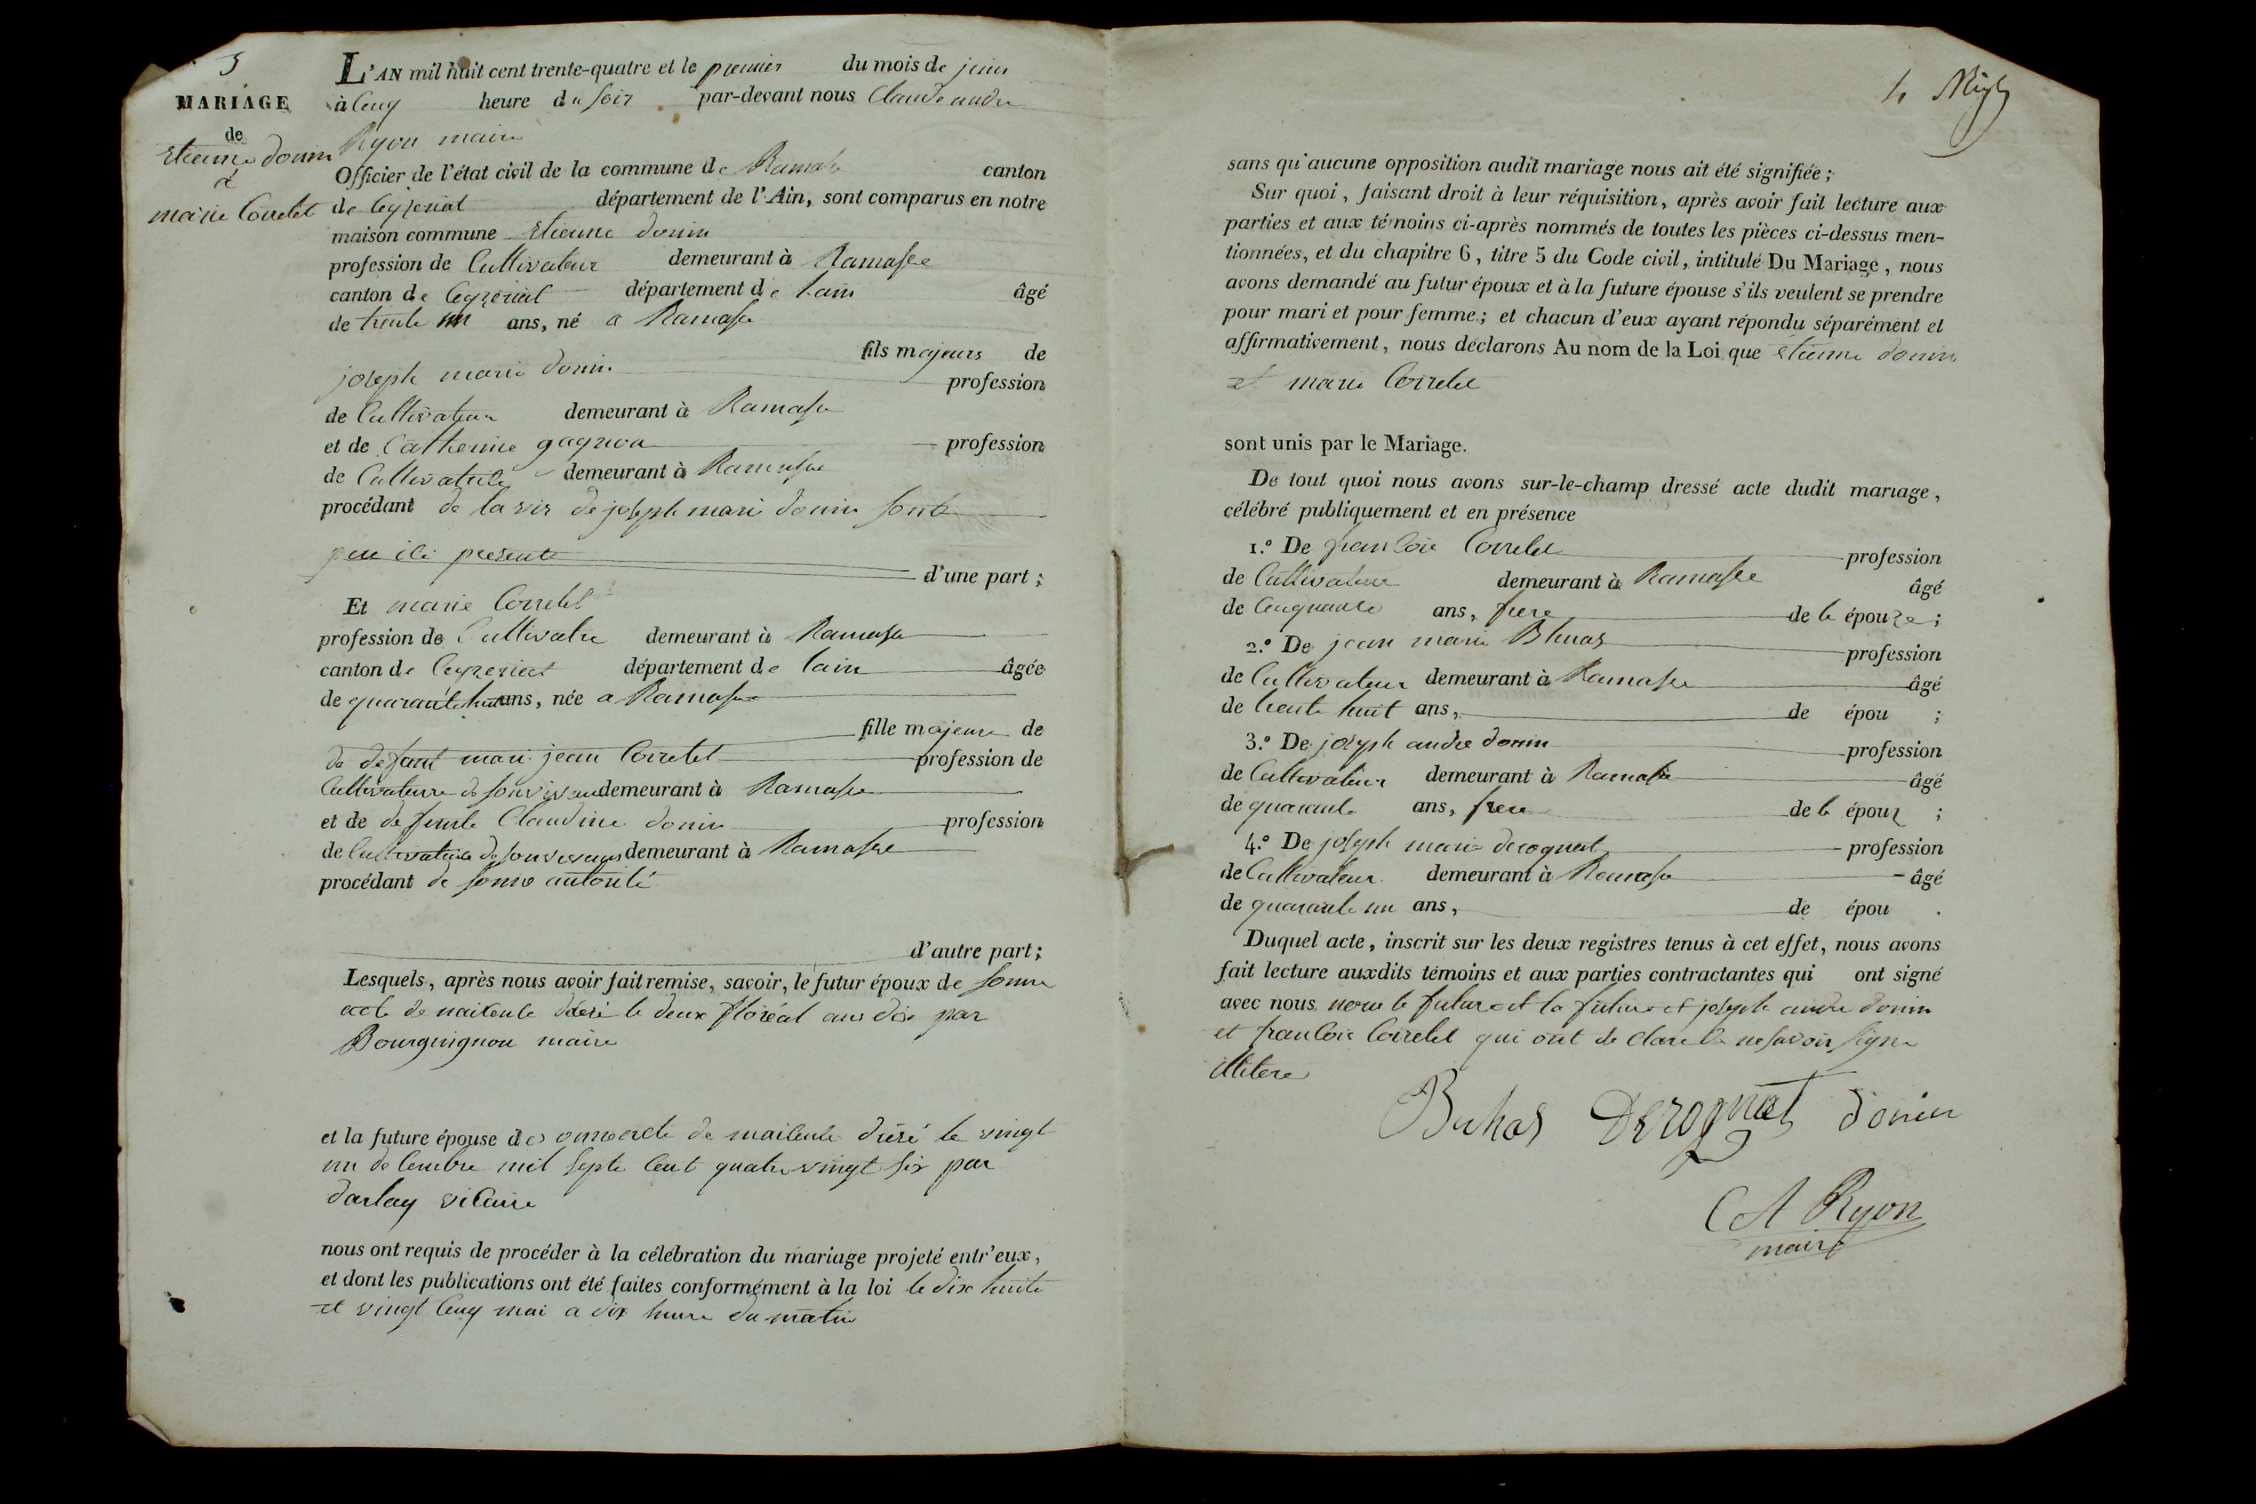 3
MARIAGE
de
etienne donin
&
marie Corretet
L'AN mil huit cent trente-quatre et le premier du mois de juin
à Cinq heure du soir par-devant nous Claude andre
Ryon maire
Officier de l'état civil de la commune de Ramasse canton
de Ceyzeriat département de l'Ain, sont comparus en notre
maison commune etienne donin
profession de Cultivateur demeurant à Ramasse
canton de Ceyzeriat département de lain âgé
de trente un ans, né a Ramasse
fils majeurs de
joseph marie donin profession
de Cultivateur demeurant à Ramasse
et de Catherine gagnon profession
de Cultivatrice demeurant à Ramasse
procédant de lavis de joseph marie donin sont
pere ici presente
d'une part ;
Et marie Corretet
profession de Cultivatre demeurant à Ramasse
canton de Ceyzeriat département de lain âgée
de quarante huit ans, née a Ramasse
fille majeure de
de defunt marie jean Corretet profession de
Cultivateure de son vivant demeurant à Ramasse
et de defunte Claudine donin profession
de Cultivatrice de son vivans demeurant à Ramasse
procédant de sonne autorité
d'autre part ;
Lesquels, après nous avoir fait remise, savoir, le futur époux de sonne
acte de naicente dresé le deux floréal ans dix par
Bourguignon maire
et la future épouse des onne acte de naicente dresé le vingt
un decembre mil septe cent quatre vingt six par
darlay vicaire
nous ont requis de procéder à la célébration du mariage projeté entr'eux,
et dont les publications ont été faites conformément à la loi le dix huite
et vingt cinq mai a dix heure du matin
sans qu'aucune opposition audit mariage nous ait été signifiée ;
Sur quoi, faisant droit à leur réquisition, après avoir fait lecture aux
parties et aux témoins ci-après nommés de toutes les pièces ci-dessus men-
tionnées, et du chapitre 6, titre 5 du Code civil, intitulé Du Mariage, nous
avons demandé au futur époux et à la future épouse s'ils veulent se prendre
pour mari et pour femme ; et chacun d'eux ayant répondu séparément et
affirmativement, nous déclarons Au nom de la Loi que etienne donin
et marie Corretet
sont unis par le Mariage.
De tout quoi nous avons sur-le-champ dressé acte dudit mariage,
célébré publiquement et en présence
1.º De francoie Corretet profession
de Cultivateure demeurant à Ramasse âgé
de Cinquante ans, frere de le épouze ;
2.º De jean marie Buhas profession
de Cultivateur demeurant à Ramasse âgé
de trente huit ans, de épou ;
3.º De joseph andre donin profession
de Cultivateur demeurant à Ramasse âgé
de quarante ans, frere de le épouz ;
4.º De joseph marie derognat profession
de Cultivateur demeurant à Ramasse âgé
de quarante un ans, de épou .
Duquel acte, inscrit sur les deux registres tenus à cet effet, nous avons
fait lecture auxdits témoins et aux parties contractantes qui ont signé
avec nous non le futur et la future et joseph andre donin
et francoie Corretet qui ont de clare ne savoir signe
illitere
Buhas Derognat donin
C A Ryon
maire